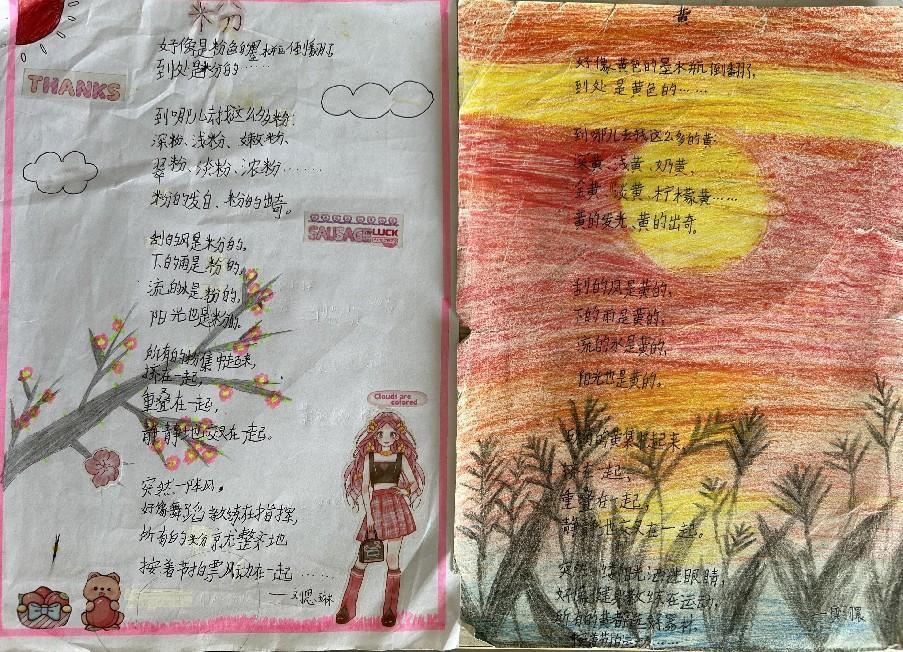 粉
THANKS
好像是粉色的墨水瓶倒翻了
到处是粉的……
到哪儿去找这么多粉:
深粉、浅粉、嫩粉、
翠粉、淡粉、浓粉……
粉的发白、粉的出奇。
SAUSAGE
LUCK
刮的风是粉的。
下的雨是粉的,
流的水是粉的,
阳光也是粉的。
所有的粉集中起来,
挤在一起,
重叠在一起,
静静地交叉在一起。
Clouds are
colored
突然一阵风。
好像舞蹈教练在指挥,
所有的粉就整齐地
按着节拍飘动在一起……
——刘思琳
黄
好像黄色的墨水瓶倒翻了,
到处是黄色的……
到哪儿去找这么多的黄:
深黄、浅黄、奶黄、
金黄、淡黄、柠檬黄……
黄的发光、黄的出奇。
刮的风是黄的,
下的雨是黄的,
流的水是黄的,
阳光也是黄的。
所有的黄集中起来,
挤在一起,
重叠在一起,
静静地交叉在一起。
突然一
眼睛,
好像健身教练在运动,
所有的黄都